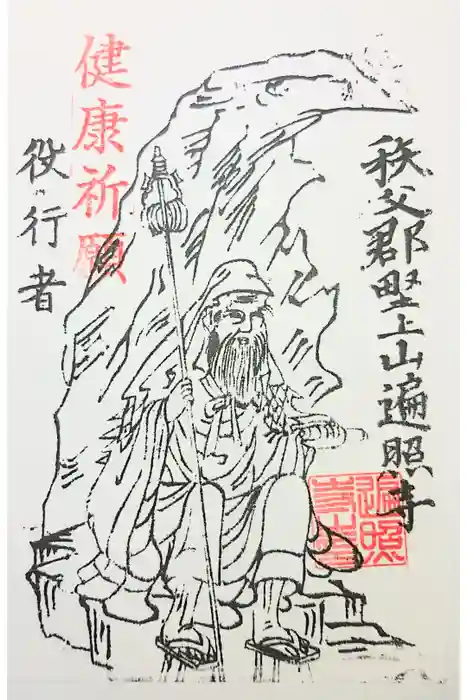 秩父郡埜上山遍照寺
健康祈願
役行者
遍照
寺